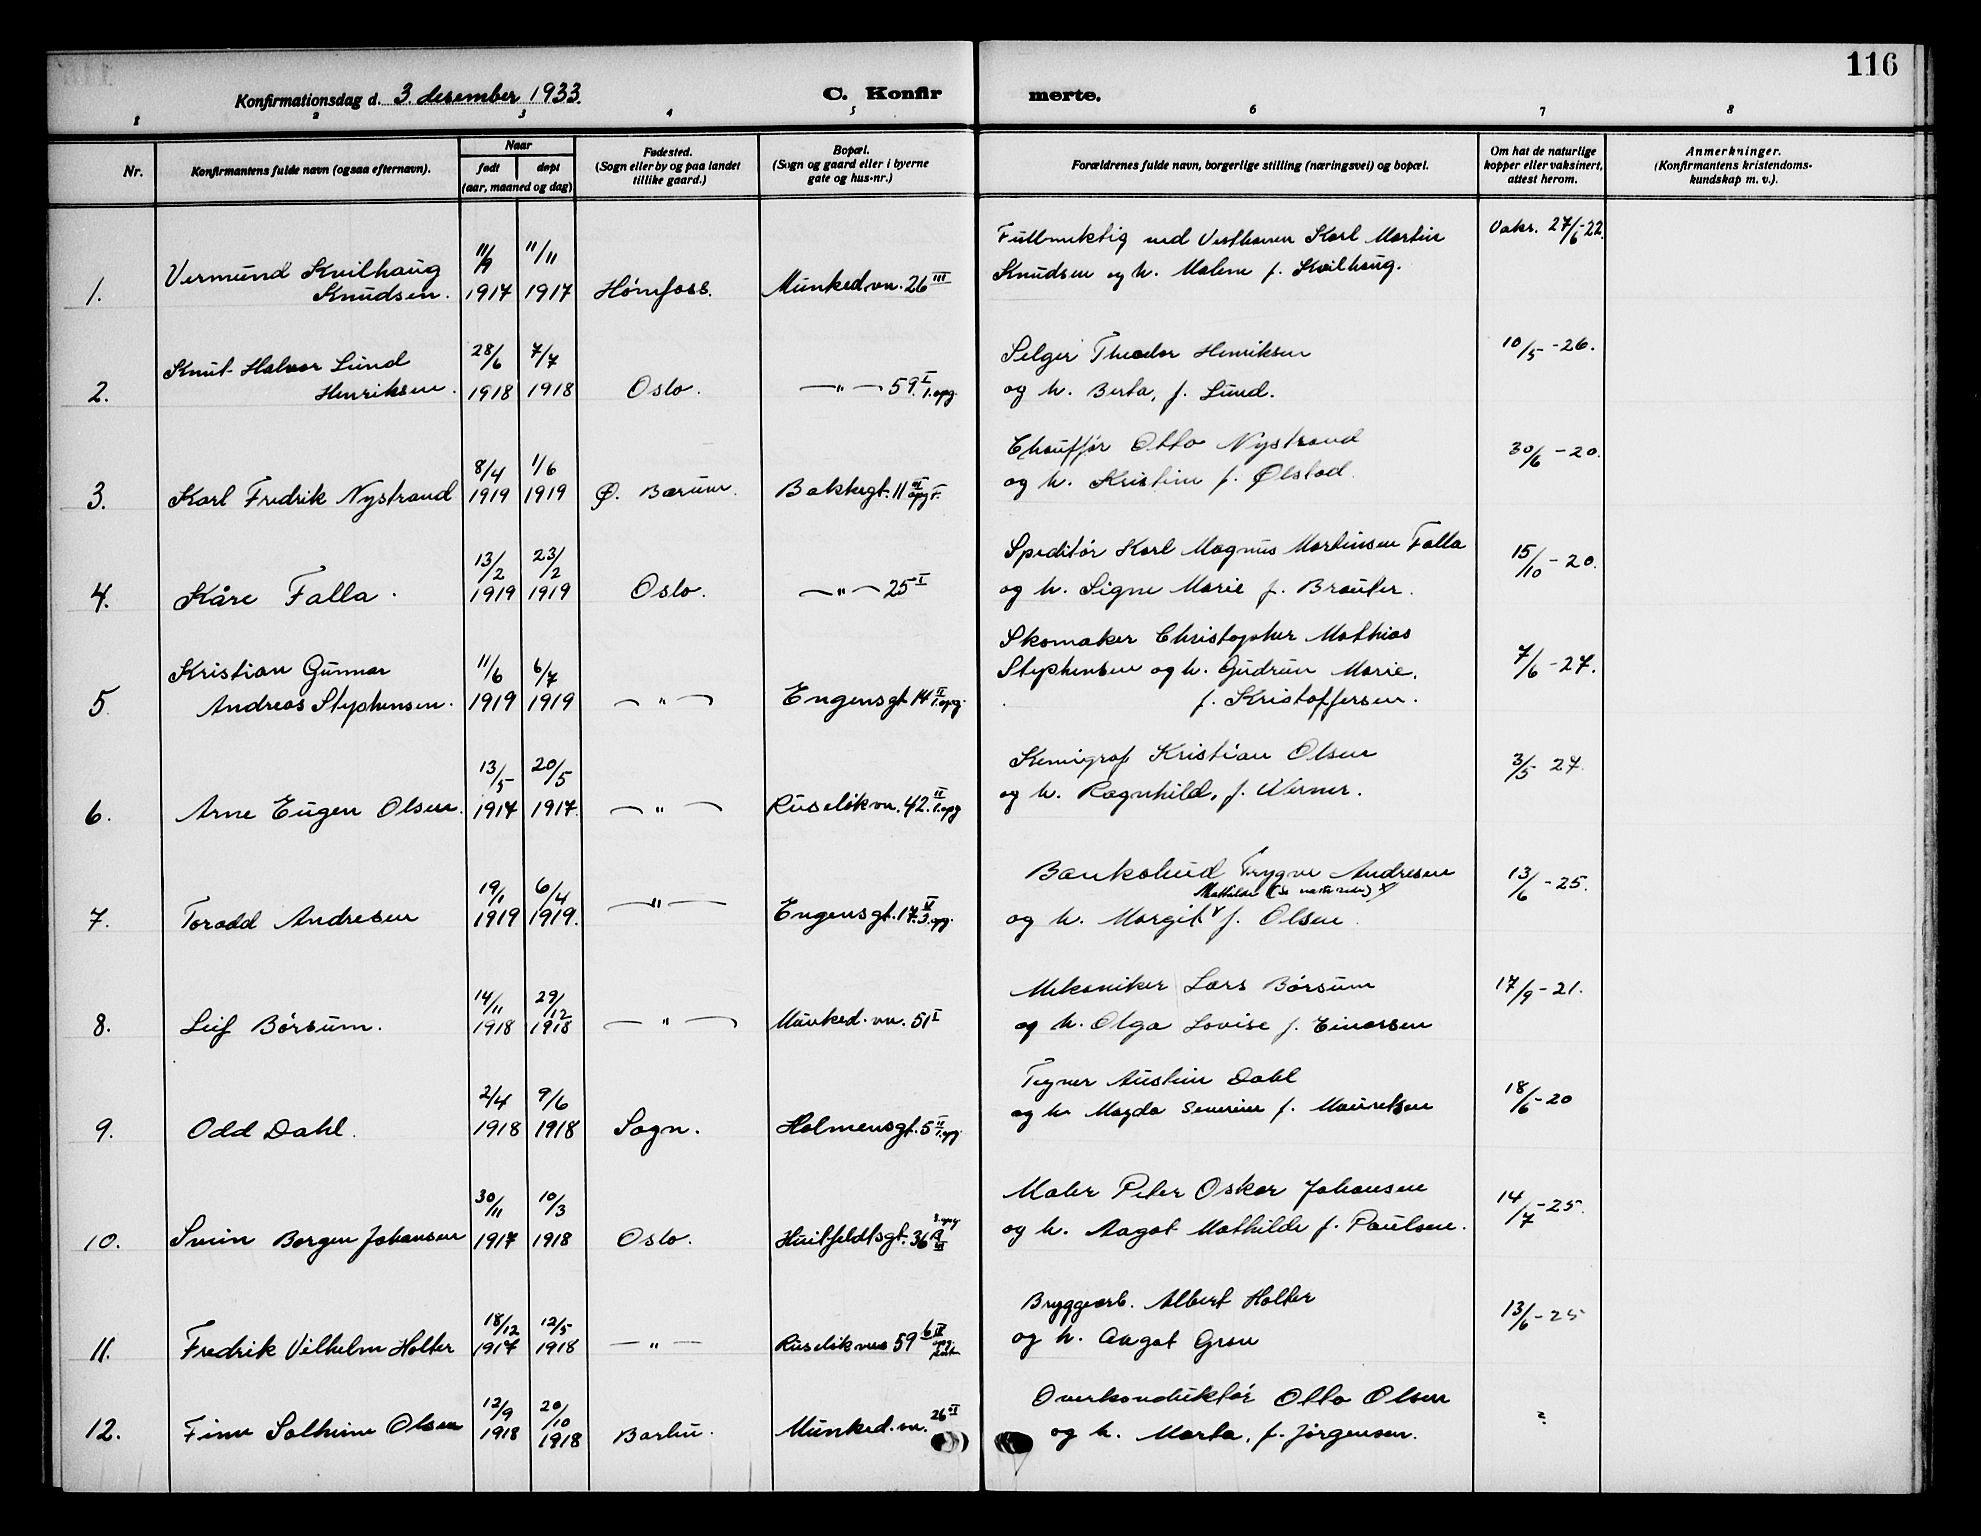 116
Konfirmationsdag d. 3. desember 1933.
C. Konfir merte.
1 2 3 4 5 6 7 8
Nr.
Konfirmantens fulde navn (ogsaa efternavn).
Naar
født døpt
(aar, maaned og dag)
Fødested.
(Sogn eller by og paa landet
tillike gaard.)
Bopæl.
(Sogn og gaard eller i byerne
gate og hus-nr.)
Forældrenes fulde navn, borgerlige stilling (næringsvei) og bopæl.
Om hat de naturlige
kopper eller vaksinert,
attest herom.
Anmerkninger.
(Konfirmantens kristendoms-
kundskap m. v.).
11/9 11/11 Fullmektig ved Vesthaven Karl Martin Vaks. 27/6-22.
Vermund Kvilhaug Knudsen og h. Malene f. Kvilhaug.
1. Knudsen. 1917 1917 Hønefoss. Munked.vn. 26 III
Knut Halvor Lund 28/6 7/7 Selger Theodor Henriksen 10/5-26.
2. Henriksen. 1918 1918 Oslo. —"— 59 I 1. opg. og h. Berta, f. Lund.
8/4 1/6 Chauffør Otto Nystrand 30/6-20.
3. Karl Fredrik Nystrand 1919 1919 Ø. Bærum. Bakkegt. 11 III opg. og h. Kristine f. Ølstad
13/2 23/2 Speditør Karl Magnus Martinsen Falla 15/10-20.
4. Kåre Falla. 1919 1919 Oslo. —"— 25 I og h. Signe Marie f. Brauter.
Kristian Gunnar 11/6 6/7 Skomaker Christopher Mathias 7/6-27.
5 Andreas Stephensen. 1919 1919 —"— Engensgt. 14 II 1. opg. Stephensen og h. Gudrun Marie,
f. Kristoffersen.
13/5 20/5 Kemigraf Kristian Olsen 3/5 27.
6. Arne Eugen Olsen. 1917 1917. —"— Ruseløkvn. 42. II 1. opg og h. Ragnhild, f. Werner.
19/1 6/4 Bankobud Trygve Andresen 13/6-25.
Mathilde
7. Toradd Andresen 1919 1919. —"— Engensgt. 17. V 3. opg. og h. Margit f. Olsen.
14/11 29/12 Mekaniker Lars Børsum 17/9-21.
8. Leif Børsum. 1918 1918 —"— Munked.vn. 51 I og h. Olga Lovise f. Einarsen
2/4 9/6 Tegner Austin Dahl 18/6-20
9. Odd Dahl. 1918 1918 Sogn. Holmensgt. 5 II 1. opg. og h. Magda Severine f. Mauritsen
30/11 10/3 Maler Peter Oskar Johansen 14/7-25.
10. Svein Borgen Johansen 1917 1918 Oslo. Huitfeldtsgt. 36 og h. Aagot Mathilde f. Paulsen.
18/12 12/5 Bryggearb. Albert Holter 13/6-25
11. Fredrik Vilhelm Holter 1917 1918 —"— Ruseløkveien 59 og h. Aagot Grøn
12/9 20/10 Overkonduktør Otto Olsen ?
12. Finn Solheim Olsen 1918 1918 Barbu. Munked.vn. 26 VI og h. Marta, f. Jørgensen.